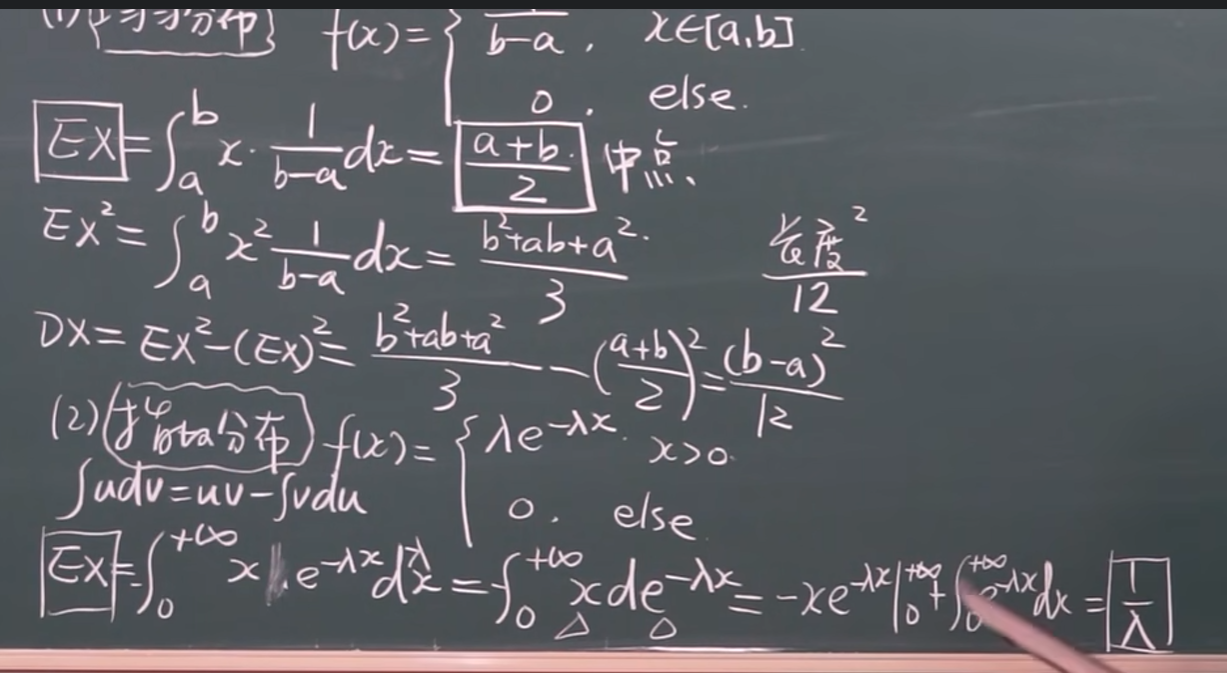 (1) 均匀分布 f(x)= { 1/(b-a), x∈[a,b].
0, else.
EX=∫_a^b x·1/(b-a) dx= (a+b)/2 中点.
EX²=∫_a^b x² 1/(b-a) dx= (b²+ab+a²)/3
长度²/12
DX=EX²-(EX)²= (b²+ab+a²)/3 - ((a+b)/2)²= (b-a)²/12
(2) 分布 f(x)= { λe^{-λx}. x>0.
∫udv=uv-∫vdu
0. else
EX=∫_0^{+∞} x e^{-λx}dλx=-∫_0^{+∞} xde^{-λx}=-xe^{-λx}|_0^{+∞}+∫_0^{+∞}e^{-λx}dx= 1/λ